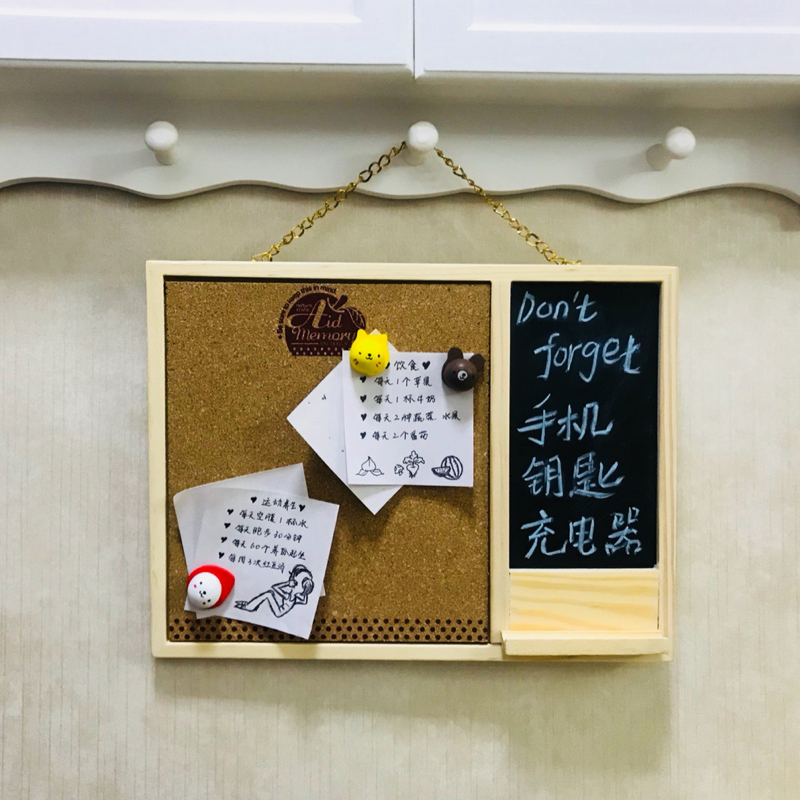 Aid
Memory
饮食♥
♥ 每天1个苹果
♥ 每天1杯牛奶
♥ 每天2种蔬菜 水果
♥ 每天2个番茄
♥ 运动养生♥
♥ 每天空腹1杯水
♥ 每天跑步30分钟
♥ 每天60个仰卧起坐
♥ 每周3次
Don't
forget
手机
钥匙
充电器